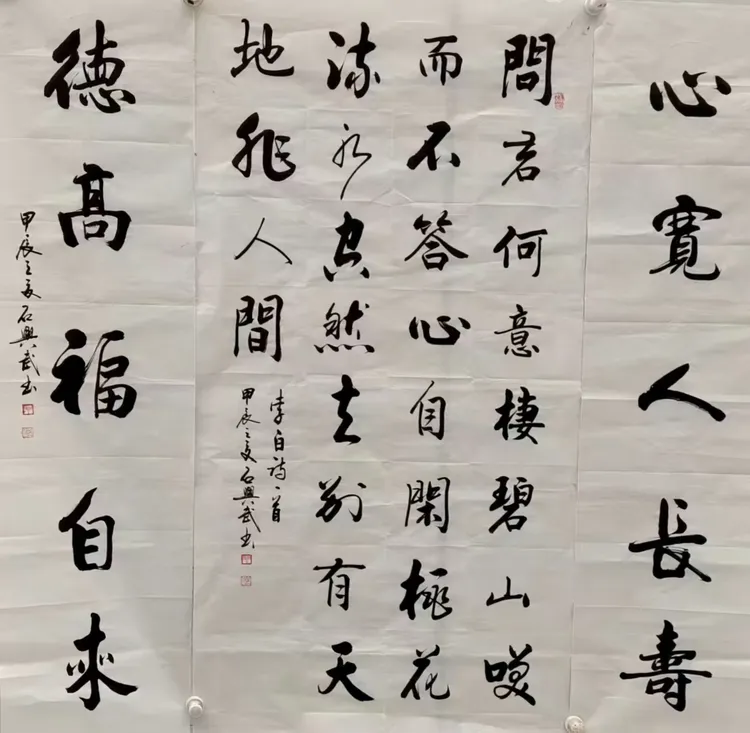 心寬人長壽
問君何意棲碧山咲
而不答心自閑桃花
流水窅然去別有天
地非人間
李白詩一首
甲辰之夏石興武书
德髙福自來
甲辰之夏石興武书